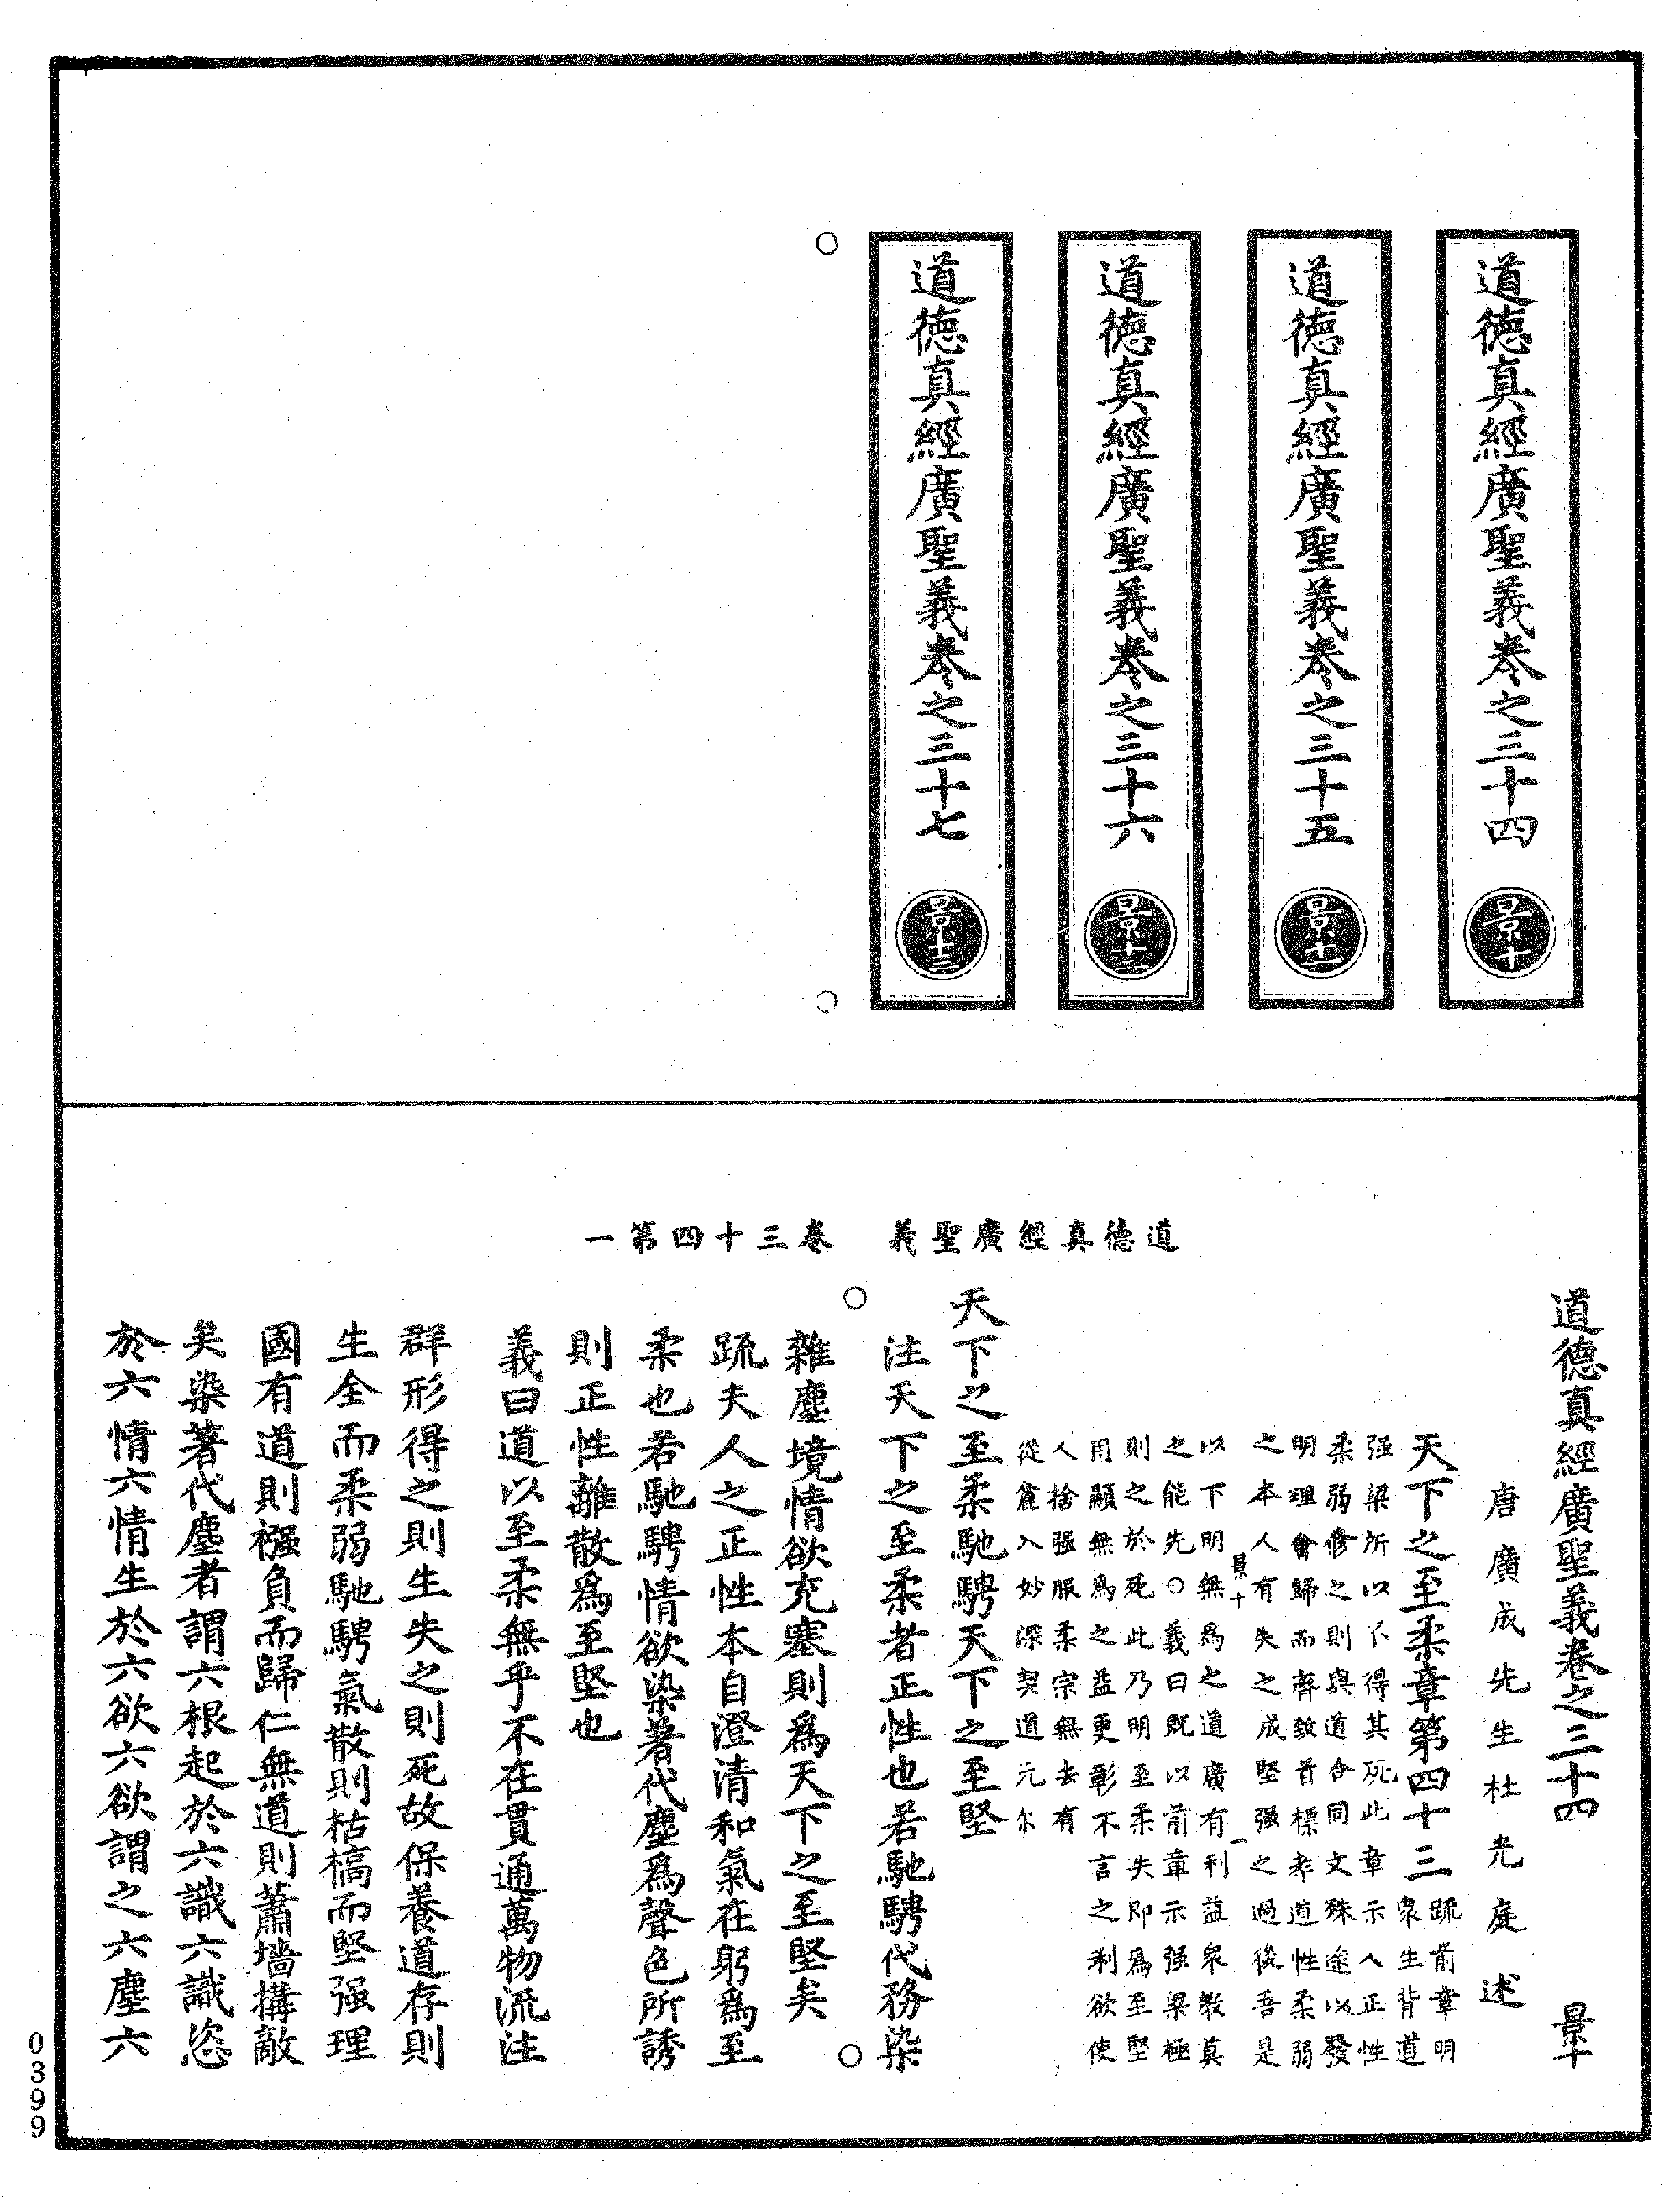 道德真經廣聖義卷之三十四 景十
道德真經廣聖義卷之三十五 景十一
道德真經廣聖義卷之三十六 景十二
道德真經廣聖義卷之三十七 景十三
道德真經廣聖義 卷三十四第一
道德真經廣聖義卷之三十四 景十
唐廣成先生杜光庭述
天下之至柔章第四十三
疏前章明
衆生背道
强梁所以不得其死此章示人正性
柔弱修之則與道合同文殊途以發
明理會歸而齊致首標老道性柔弱
之本人有失之成堅强之過後吾是
景十 一
以下明無爲之道廣有利益衆教真
之能先○義曰既以前章示强梁極
則之於死此乃明至柔失即爲至堅
用顯無爲之益更彰不言之利欲使
人捨强服柔宗無去有
從麁入妙深契道元尔
天下之至柔馳騁天下之至堅
注天下之至柔者正性也若馳騁代務染
雜塵境情欲充塞則爲天下之至堅矣
疏夫人之正性本自澄清和氣在躬爲至
柔也若馳騁情欲染著代塵爲聲色所誘
則正性離散爲至堅也
義曰道以至柔無乎不在貫通萬物流注
群形得之則生失之則死故保養道存則
生全而柔弱馳騁氣散則枯槁而堅强理
國有道則襁負而歸仁無道則蕭墻搆敵
矣染著代塵者謂六根起於六識六識恣
於六情六情生於六欲六欲謂之六塵六
0399